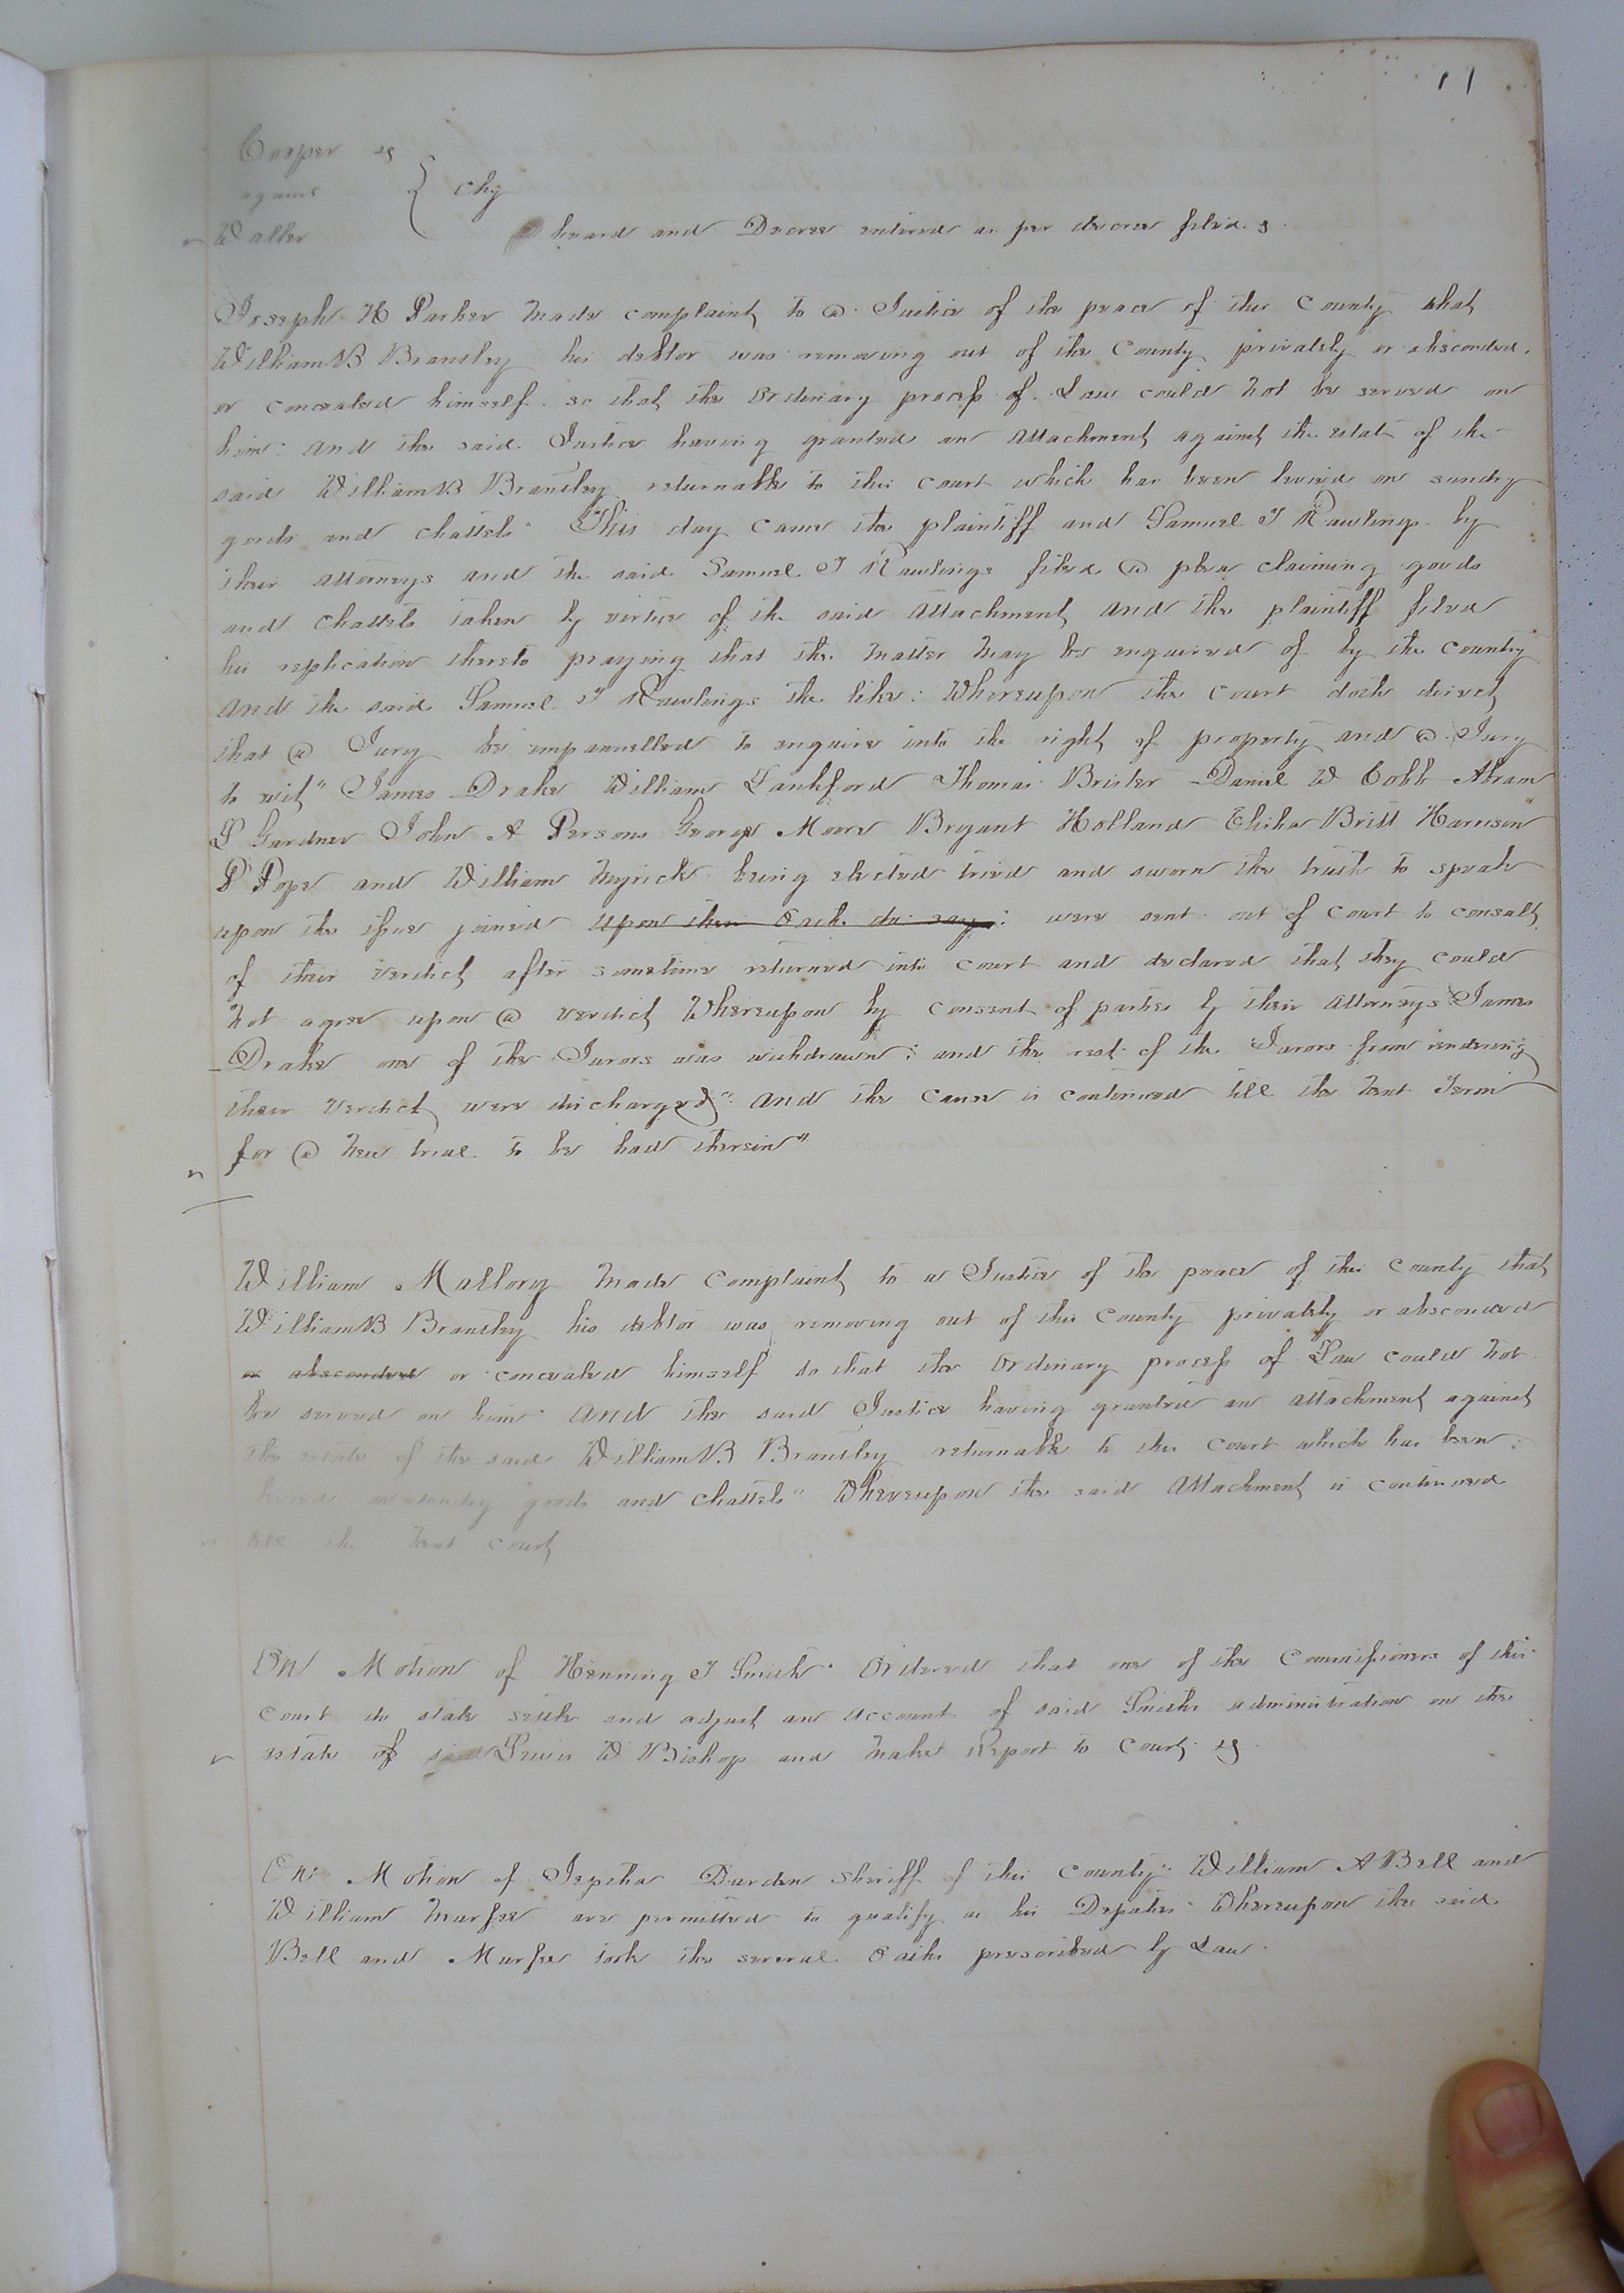 11
Cooper &c
against } Chy
Waller
heard and Decree entered as per decree filed. &
Joseph H Parker made complaint to a Justice of the peace of this County that
William B Brantley his debtor was removing out of the County privately or absconded.
or concealed himself so that the Ordinary process of Law could not be served on
him: And the said Justice having granted an Attachment against the estate of the
said William B Brantley returnable to this Court which has been levied on sundry
goods and chattels" This day came the plaintiff and Samuel J Rawlings by
their attorneys and the said Samuel J Rawlings filed a plea claiming goods
and chattels taken by virtue of the said Attachment and the plaintiff filed
his replication thereto praying that the matter may be enquired of by the Country
And the said Samuel J Rawlings the like: Whereupon the Court doth direct
that a Jury be empannelled to enquire into the right of property and a Jury
to wit" James Drake William Lankford Thomas Brister Daniel W Cobb Abram
S Gardner John A Persons George Moore Bryant Holland Elisha Britt Harrison
P Pope and William Myrick being elected tried and sworn the truth to speak
upon the issue joined upon their Oath do say: were sent out of Court to consult
of their verdict after sometime returned into Court and declared that they could
not agree upon a verdict Whereupon by consent of parties by their Attorneys James
Drake one of the Jurors was withdrawn: and the rest of the Jurors from rendering
their Verdict were discharged" And the cause is continued till the next Term
for a new trial to be had therein"
William Mallory made complaint to a Justice of the peace of this County that
William B Brantley his debtor was removing out of this County privately or absconded
or absconded or concealed himself so that the Ordinary process of Law could not
be served on him. And the said Justice having granted an attachment against
the estate of the said William B Brantley returnable to this Court which has been
levied on sundry goods and chattels" Whereupon the said Attachment is continued
till the next Court
On Motion of Henning J Smith. Ordered that one of the Commissioners of this
Court do state settle and adjust an account of said Smiths administration on the
estate of said Lewis W Bishop and make Report to Court &
On: Motion of Jeptha Darden Sheriff of this County" William A Bell and
William Murfee are permitted to qualify as his Deputies Whereupon the said
Bell and Murfee took the several Oaths prescribed by Law.